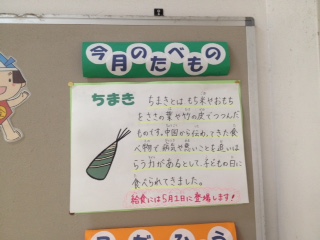 今月のたべもの
ちまき
ちまきとは、もち米やおもち
をささの葉や竹の皮でつつんだ
ものです。中国から伝わってきた食
べ物で病気や悪いことを追いは
らう力があるとして、子どもの日に
食べられてきました。
給食には5月2日に登場します!